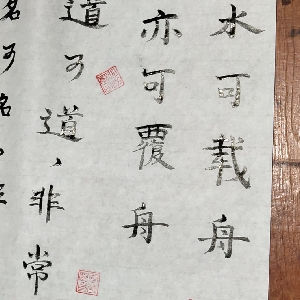 水可载舟
亦可覆舟
道可道、非常
名可名、非